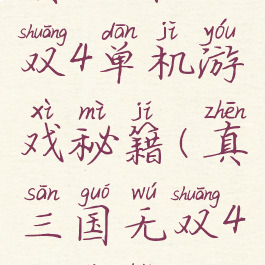 shuāng dān jī yóu
双4单机游
xì mì jí zhēn
戏秘籍(真
sān guó wú shuāng
三国无双4